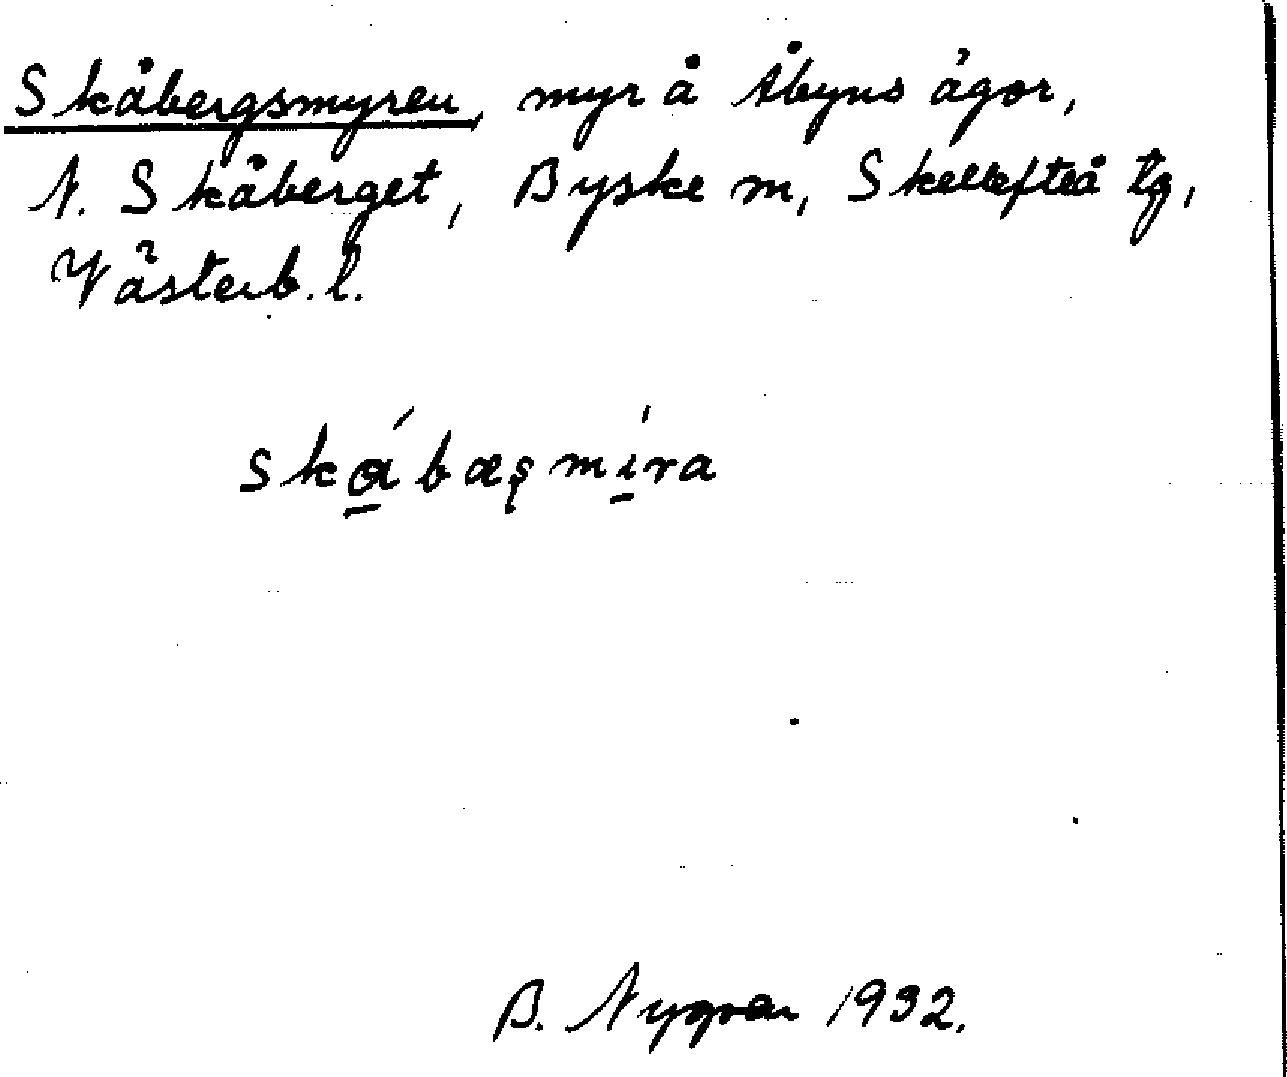 Skåbergsmyren, myr å Åbyns ägor,
N. Skåberget, Byske sn, Skellefteå tg,
Västerb. l.
skábæşmíra
B. Nygren 1932.